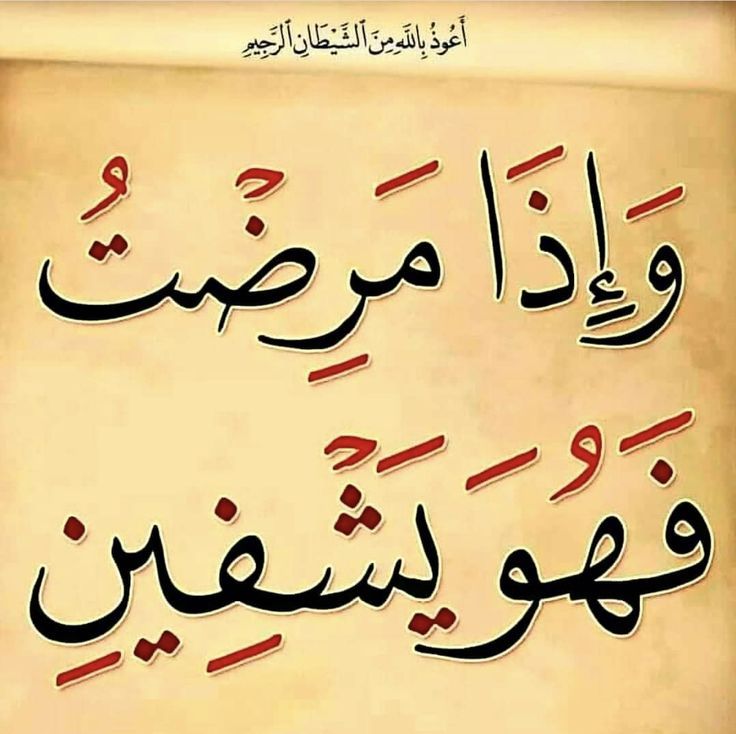 أَعُوذُ بِاللَّهِ مِنَ ٱلشَّيْطَانِ ٱلرَّجِيمِ
وَإِذَا مَرِضْتُ
فَهُوَ يَشْفِينِ